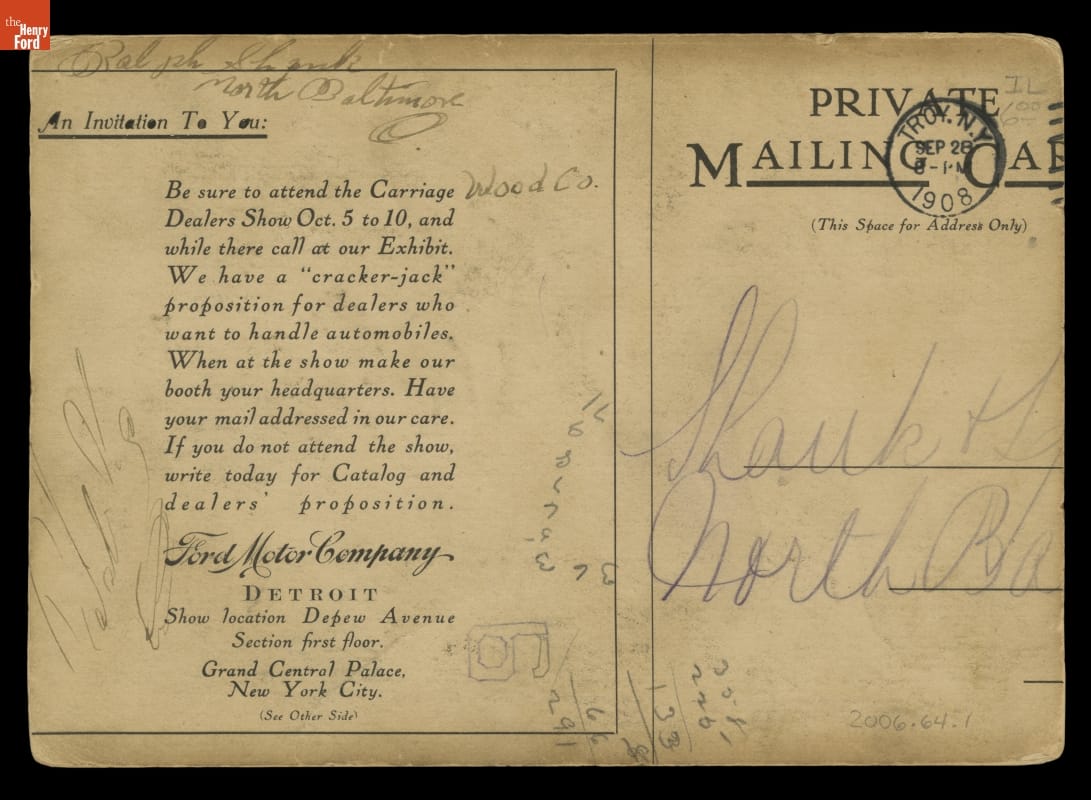 the
Henry
Ford
Ralph Shank
North Baltimore
O
Wood Co.
An Invitation To You:
Be sure to attend the Carriage
Dealers Show Oct. 5 to 10, and
while there call at our Exhibit.
We have a "cracker-jack"
proposition for dealers who
want to handle automobiles.
When at the show make our
booth your headquarters. Have
your mail addressed in our care.
If you do not attend the show,
write today for Catalog and
dealers' proposition.
Ford Motor Company
DETROIT
Show location Depew Avenue
Section first floor.
Grand Central Palace,
New York City.
(See Other Side)
PRIVATE
MAILING CAR
TROY. N.Y.
SEP 28
8-PM
1908
(This Space for Address Only)
Shank &
North Ba
291
66
133
2006.64.1